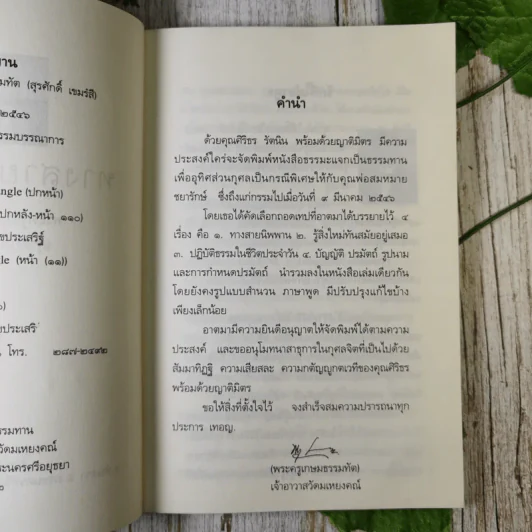 าน
มทัต (สุรศักดิ์ เขมรํสี)
๒๕๔๖
รรมบรรณาการ
ngle (ปกหน้า)
ปกหลัง-หน้า ๑๑๐)
ขประเสริฐ์
gle (หน้า (๑๑))
๐)
งประเสริ
โทร. ๒๘๗-๒๔๙๒
รรมทาน
วัดมเหยงคณ์
ระนครศรีอยุธยา
คำนำ
ด้วยคุณศิริธร รัตนิน พร้อมด้วยญาติมิตร มีความ
ประสงค์ใคร่จะจัดพิมพ์หนังสือธรรมะแจกเป็นธรรมทาน
เพื่ออุทิศส่วนกุศลเป็นกรณีพิเศษให้กับคุณพ่อสมหมาย
ชยารักษ์ ซึ่งถึงแก่กรรมไปเมื่อวันที่ ๙ มีนาคม ๒๕๔๖
โดยเธอได้คัดเลือกถอดเทปที่อาตมาได้บรรยายไว้ ๔
เรื่อง คือ ๑. ทางสายนิพพาน ๒. รู้สิ่งใหม่ทันสมัยอยู่เสมอ
๓. ปฏิบัติธรรมในชีวิตประจำวัน ๔. บัญญัติ ปรมัตถ์ รูปนาม
และการกำหนดปรมัตถ์ นำรวมลงในหนังสือเล่มเดียวกัน
โดยยังคงรูปแบบสำนวน ภาษาพูด มีปรับปรุงแก้ไขบ้าง
เพียงเล็กน้อย
อาตมามีความยินดีอนุญาตให้จัดพิมพ์ได้ตามความ
ประสงค์ และขออนุโมทนาสาธุการในกุศลจิตที่เป็นไปด้วย
สัมมาทิฏฐิ ความเสียสละ ความกตัญญูกตเวทีของคุณศิริธร
พร้อมด้วยญาติมิตร
ขอให้สิ่งที่ตั้งใจไว้ จงสำเร็จสมความปรารถนาทุก
ประการ เทอญ.
(พระครูเกษมธรรมทัต)
เจ้าอาวาสวัดมเหยงคณ์